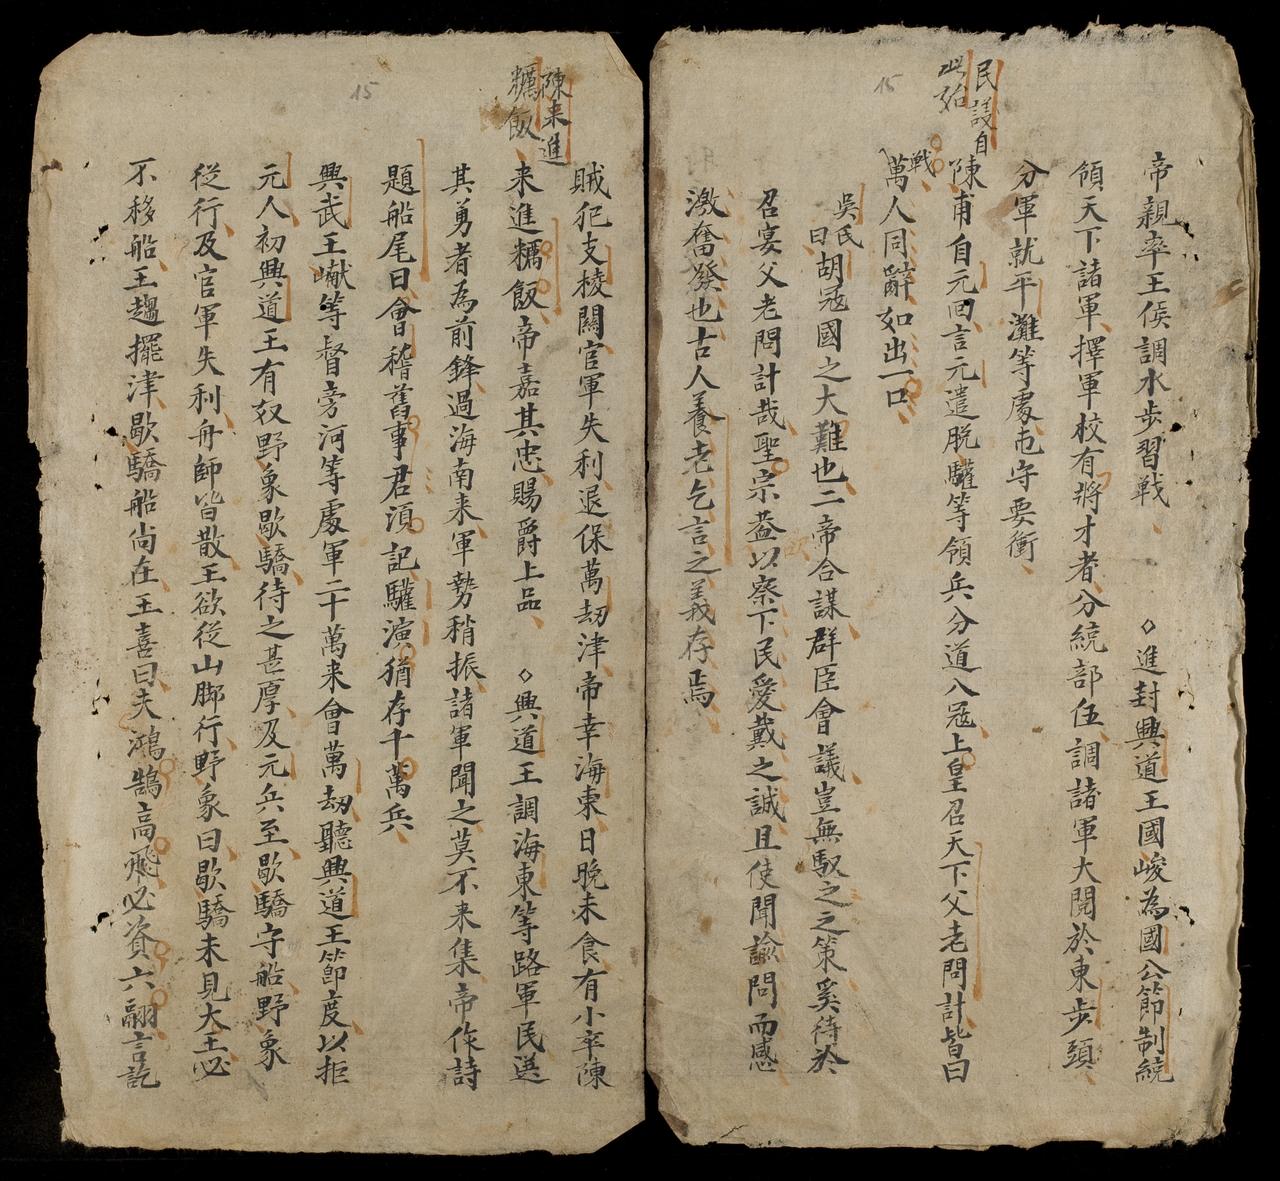 民議自
此始
15
帝親率王侯調水步習戦◇進封興道王國峻為國公節制統
領天下諸軍擇軍校有將才者分統部伍調諸軍大閱於東步頭
分軍就平灘等處屯守要衝
陳甫自元回言元遣脫驩等領兵分道入寇上皇召天下父老問計皆曰
戦
萬人同辭如出一口
吳氏曰胡寇國之大難也二帝合謀群臣會議豈無馭之之策奚待於
召宴父老問計哉聖宗葢以察下民愛戴之誠且使聞諭問而感
激奮發也古人養老乞言之義存焉
陳来進
糲飯
15
賊犯支棱關官軍失利退保萬刼津帝幸海東日晚未食有小卒陳
来進糲飯帝嘉其忠賜爵上品◇興道王調海東等路軍民選
其勇者為前鋒過海南来軍勢稍振諸軍聞之莫不来集帝作詩
題船尾曰會稽舊事君須記驩演猶存十萬兵
興武王巘等督旁河等處軍二十萬来會萬刼聽興道王節度以拒
元人初興道王有奴野象歇驕待之甚厚及元兵至歇驕守船野象
從行及官軍失利舟師皆散王欲從山脚行野象曰歇驕未見大王必
不移船王趨擺津歇驕船尚在王喜曰夫鴻鵠高飛必資六翮言訖